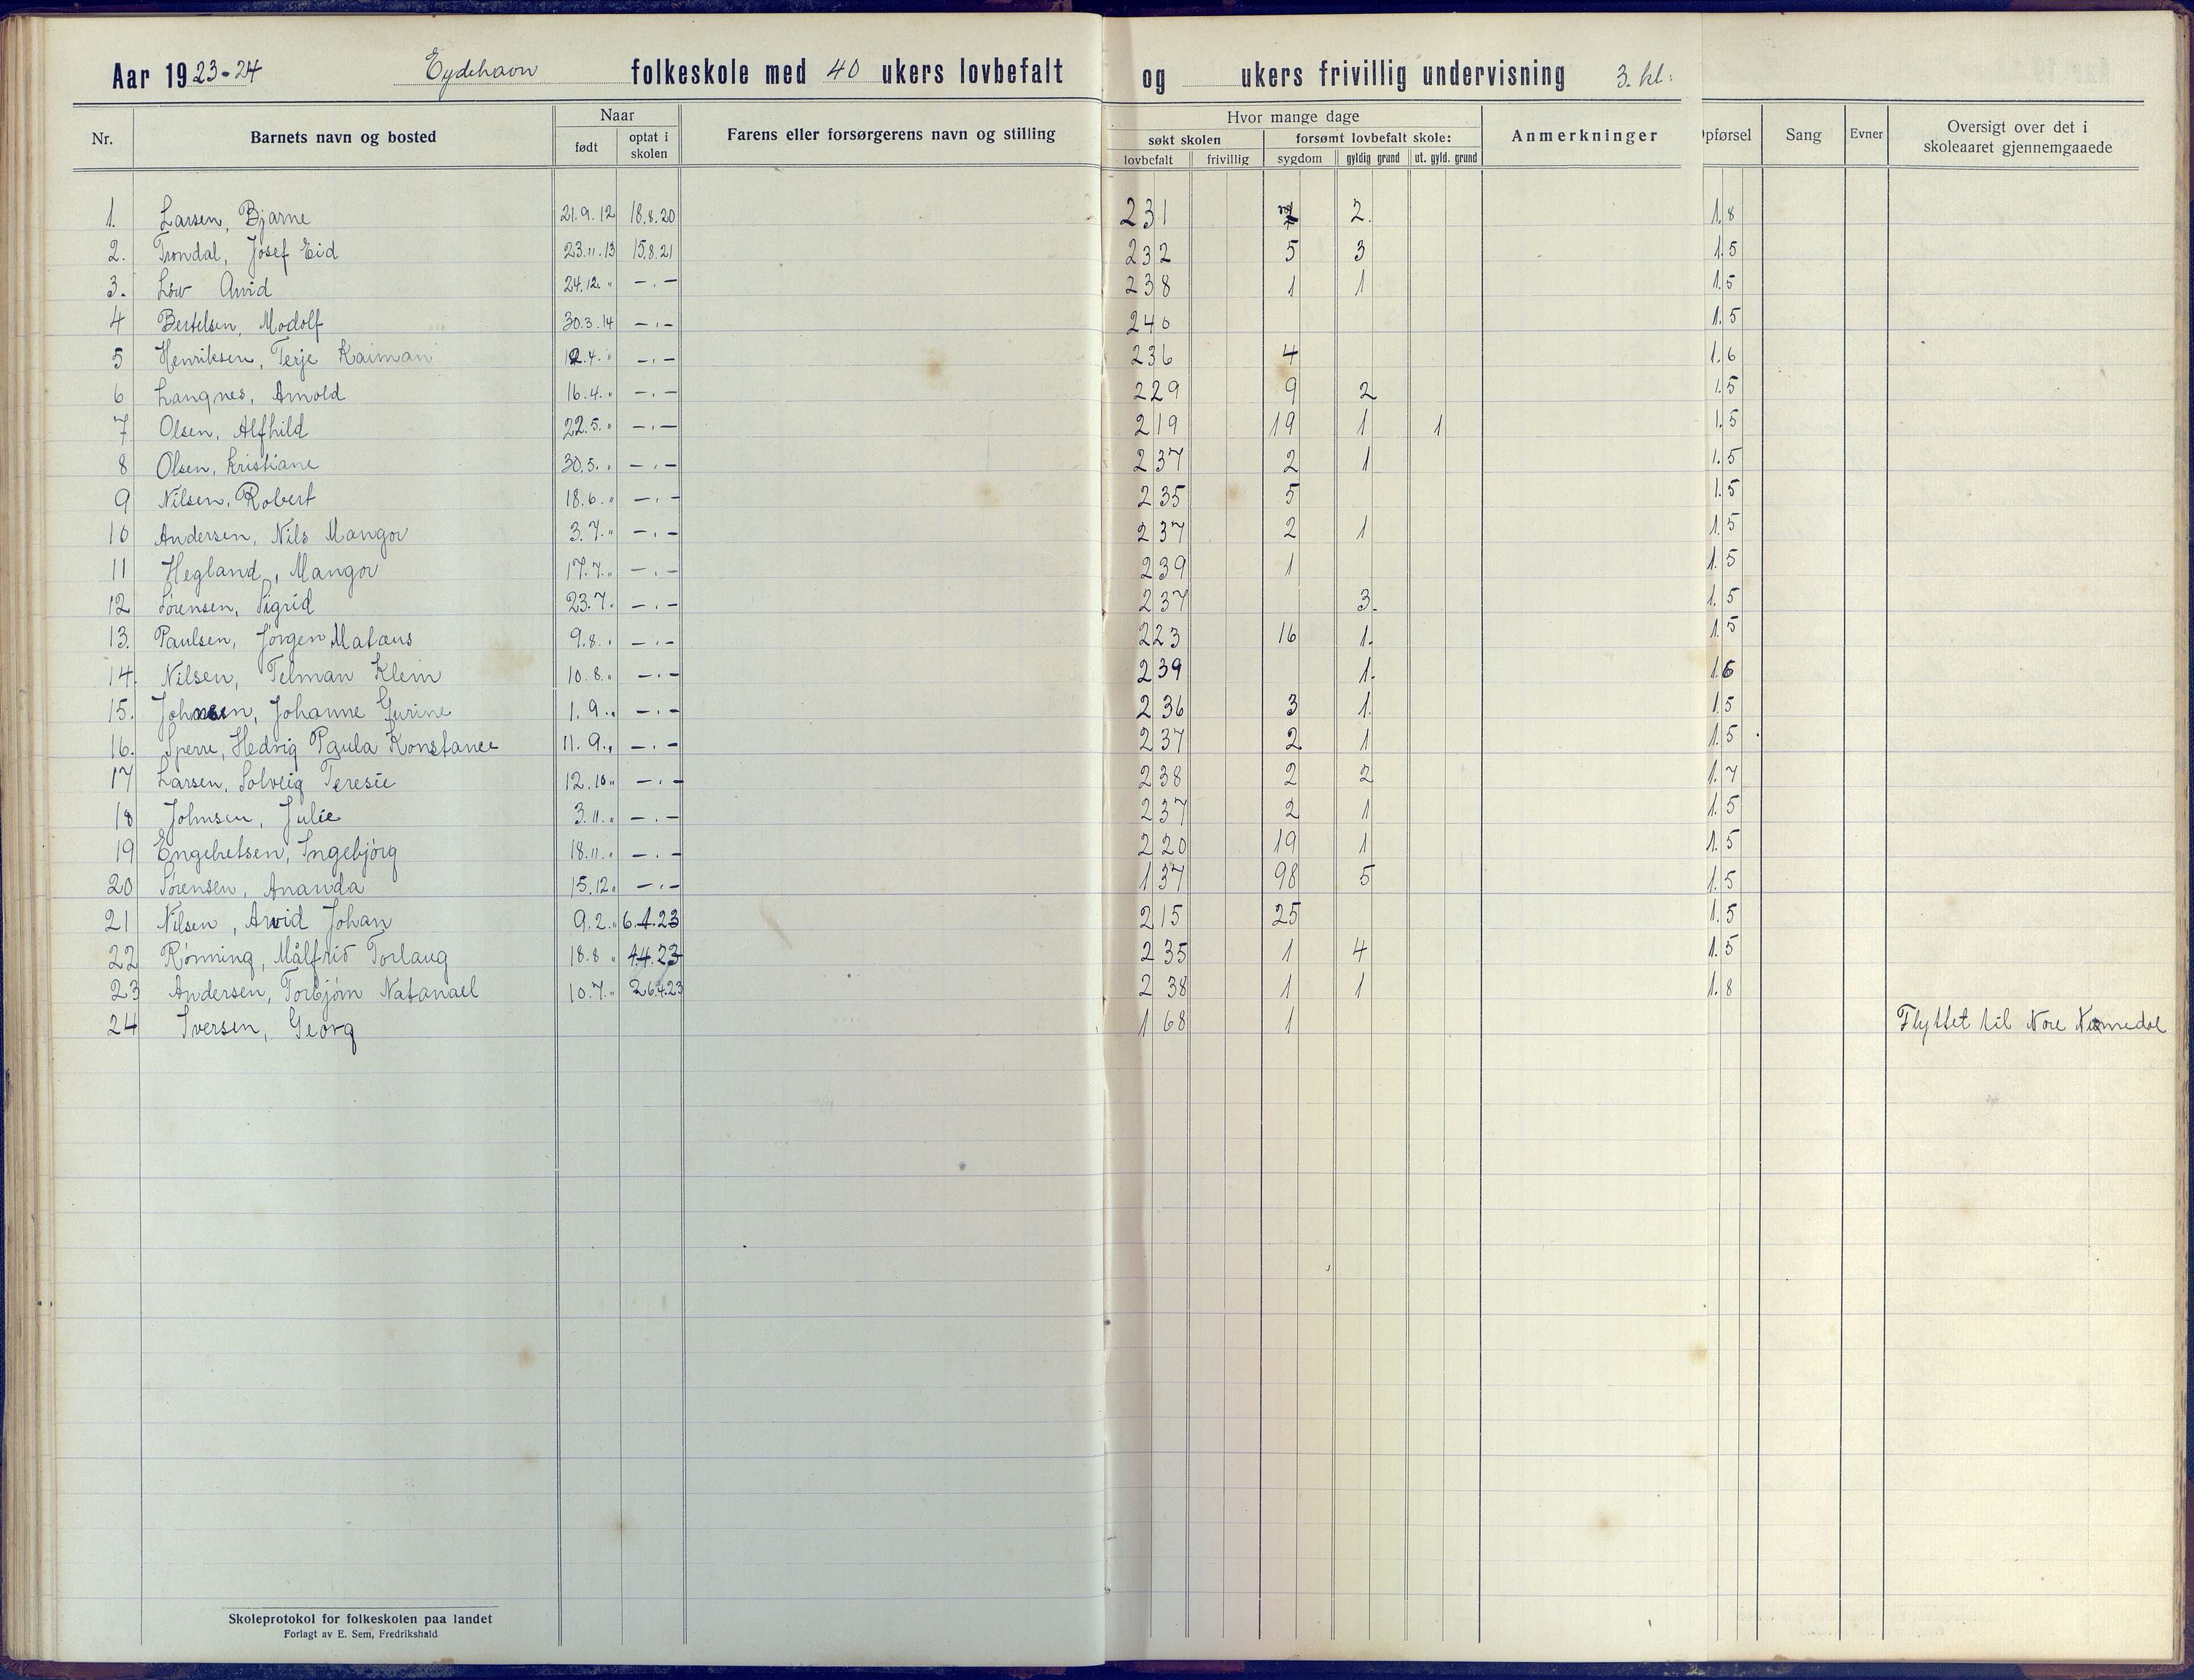 Aar 1923-24 Eydehavn folkeskole med 40 ukers lovbefalt og ukers frivillig undervisning 3. kl:
Nr. Barnets navn og bosted Naar Farens eller forsørgerens navn og stilling Hvor mange dage Anmerkninger pførsel Sang Evner Oversigt over det i skoleaaret gjennemgaaede
født optat i skolen søkt skolen forsømt lovbefalt skole:
lovbefalt frivillig sygdom gyldig grund ut. gyld. grund
1. Larsen, Bjarne 21.9.12 18.8.20 231 2. 1.8
2. Trondal, Josef Eid 23.11.13 15.8.21 232 5 3 1.5
3. Löv Arvid 24.12. " -.- 238 1 1 1.5
4 Bertelsen, Modolf 30.3.14 -.- 240 1.5
5 Henriksen, Terje Kaiman 12.4. " -.- 236 4 1.6
6 Langnes, Arnold 16.4. " -.- 229 9 2 1.5
7 Olsen, Alfhild 22.5. " -.- 219 19 1 1 1.5
8 Olsen, Kristiane 30.5. " -.- 237 2 1 1.5
9 Nilsen, Robert 18.6. " -.- 235 5 1.5
10 Andersen, Nils Mangor 3.7. " -.- 237 2 1 1.5
11 Hegland, Mangor 17.7. " -.- 239 1 1.5
12 Sörensen, Sigrid 23.7. " -.- 237 3. 1.5
13. Paulsen, Jörgen Mataus 9.8. " -.- 223 16 1. 1.5
14. Nilsen, Telman Klein 10.8. " -.- 239 1. 1.6
15. Johnsen, Johanne Gurine 1.9. " -.- 236 3 1. 1.5
16. Sperre, Hedvig Paula Konstance 11.9. " -.- 237 2 1 1.5
17 Larsen, Solveig Teresie 12.10. " -.- 238 2 2 1.7
18 Johnsen, Julie 3.11. " -.- 237 2 1 1.5
19 Engebretsen, Ingebjörg 18.11. " -.- 220 19 1 1.5
20 Sörensen, Ananda 15.12. " -.- 137 98 5 1.5
21 Nilsen, Arvid Johan 9.2. " 6.4.23 215 25 1.5
22 Rönning, Målfrid Torlaug 18.8 " 4.4.23 235 1 4 1.5
23 Andersen, Torbjörn Natanael 10.7. " 26.4.23 238 1 1 1.8
24 Iversen, Georg 168 1 Flyttet til Nore Numedal
Skoleprotokol for folkeskolen paa landet
Forlagt av E. Sem, Fredrikshald